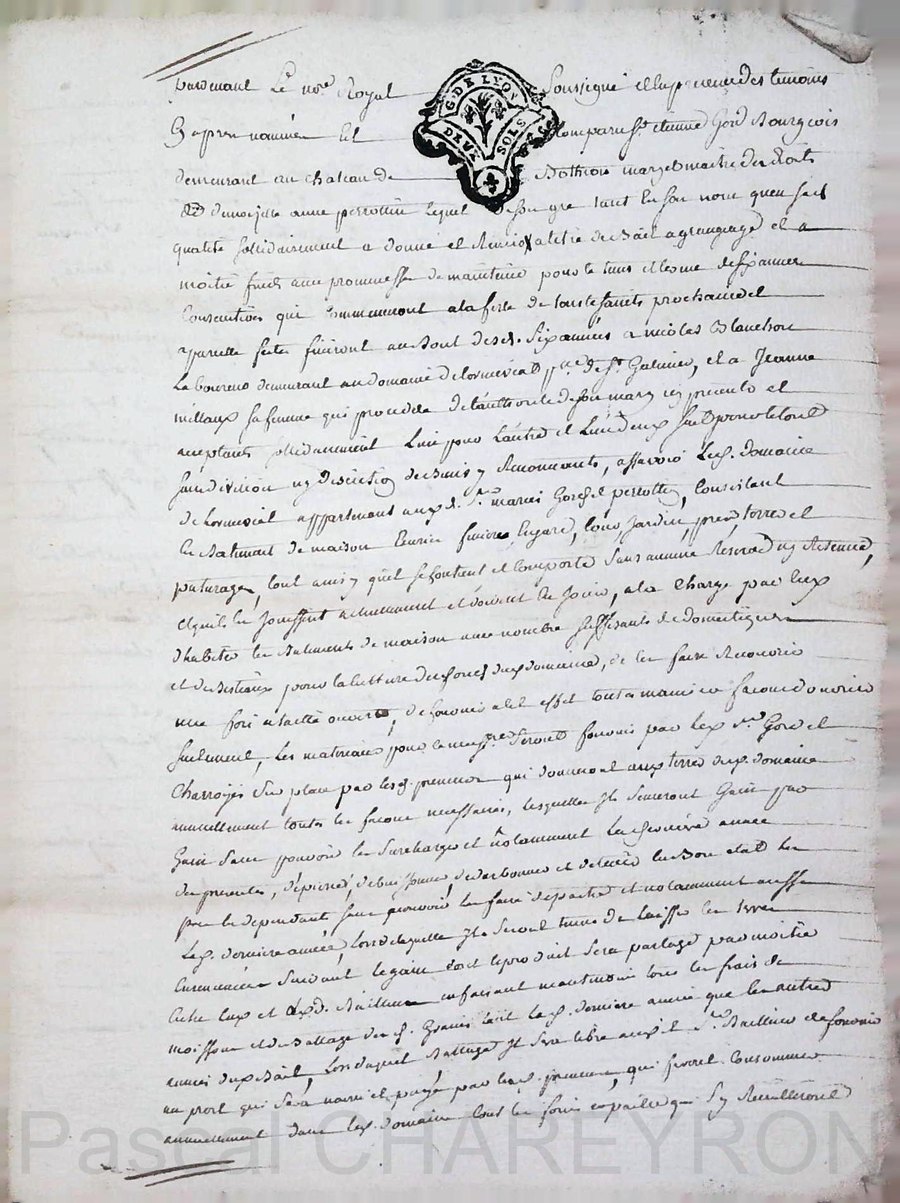 Pardevant Le no.re Royal soussigné et en presence des temoins
G. DE LYON
DEUX SOLS
Bas apres nommés est comparu Sr. etienne Gord Bourgeois
demeurant au chateau de Bothéon mary et maitre des droits
de demoiselle anne perrottin lequel de son gré tant en son nom quen sad.
qualité sollidairement a donné et Remis a titre de Bail a grangeage et a
moitié fruits avec promesse de maintenir pour le tems et terme de six années
Consecutives qui commenceront a la feste de toussaints prochaine et
a pareille feste finiront au bout desd. six années a nicolas Blanchon
Laboureur demeurant au domaine de p.sse de St. Galmier, et a Jeanne
sa femme qui procede de l'authorité de son mary icy presents et
acceptants sollidairement L'un pour L'autre et L'un deux seul pour le tout
sans division ny discution de biens y Renonceants, assavoir Led. domaine
appartenant auxd. Sr. mariés Gord et perrottin, Consistant
en Batiment de maison Ecurie feniere hugard, cour Jardin, prés, terres et
paturages, tout ainsy quil se contient et comporte sans aucune Reserve ny Retenue,
et quils en Jouissent actuellement et doivent de Jouir, a la charge par eux
d'habiter les Batiments de maison avec nombre suffisants de domestiques
et de Bestiaux pour la culture des fonds dud. domaine, de les faire Recouvrir
une fois a taille ouverte, de fournir a cet effet toute main
seulement, les materiaux pour ce necess.res seront fournis par led. Sr. Gord et
charroyés sur place par lesd. preneurs qui donneront aux terres dud. domaine
annuellement toutes les façons necessaires, lesquelles ils semeront Gain par
Gain sans pouvoir les surcharger et notamment la derniere année
des presentes, d'épierrer, debuissonner et de tenir en Bon etat les
prés en dependants sans pouvoir les faire depaitre et notamment aussy
Lad. derniere année, Lors de laquelle ils seront tenus de laisser les terres
Ensemencées suivant le gain dont le produit sera partagé par moitié
Entre eux et led. Bailleur en faisant neantmoins tous les frais de
moisson et de Battage desd. Grains tant lad. derniere année que les autres
années dud. Bail, Lors duquel Battage il sera libre aud. Sr. Bailleur de fournir
un qui sera nourri et payé par lesd. preneurs, qui feront Consommer
annuellement dans led. domaine tous les foins et pailles qui s'y Recuilleront
Pascal CHAREYRON